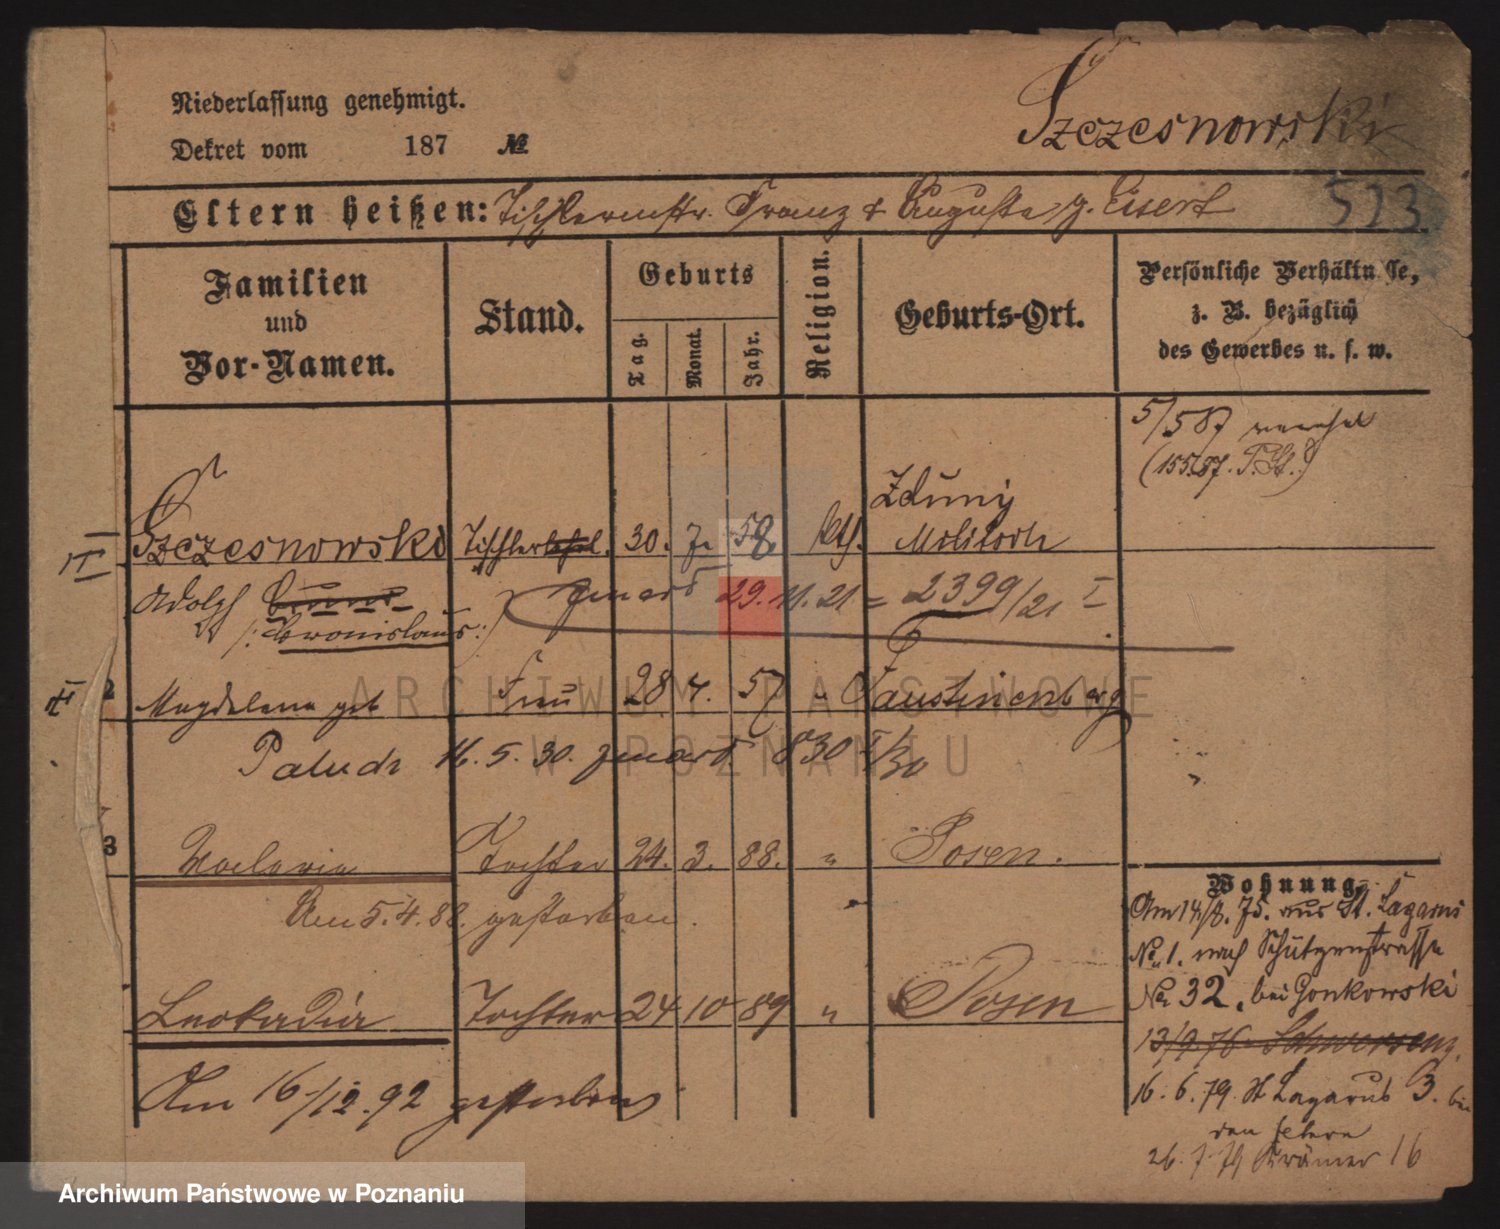 Niederlassung genehmigt.
Szczesnowski
Dekret vom 187 №
Eltern heißen: Tischlermstr. Franz & Auguste g. Eisert
523
Familien
und
Vor-Namen.
Stand.
Geburts
Tag.
Monat.
Jahr.
Religion.
Geburts-Ort.
Persönliche Verhältnisse,
z. B. bezüglich
des Gewerbes u. s. w.
5/587
(155/87. P.St.)
Zduny
Szczesnowski Tischler 30. 58 kth. Militsch
Adolph
/:Bronislaus:/
29.11.21 = 2399/21 I
II
2 Magdalena geb Frau 28 4. 57 " Faustinenberg
Paluch 16. 5. 30. 830 I/30
3 Waleria Tochter 24. 3. 88. " Posen.
Am 5.4.88. gestorben.
Leokadia Tochter 24 10 89 " Posen
Am 16/12.92 gestorben
Wohnung.
Am 14/8. 75. aus St. Lazarus
No. 1. nach Schützenstrasse
No. 32, bei Gonkowski
13/9.76 Schwersenz.
16. 6. 79. St Lazarus 3. bei
den Eltern
26. 7. 79 Krämer 16
ARCHIWUM PAŃSTWOWE
W POZNANIU
Archiwum Państwowe w Poznaniu